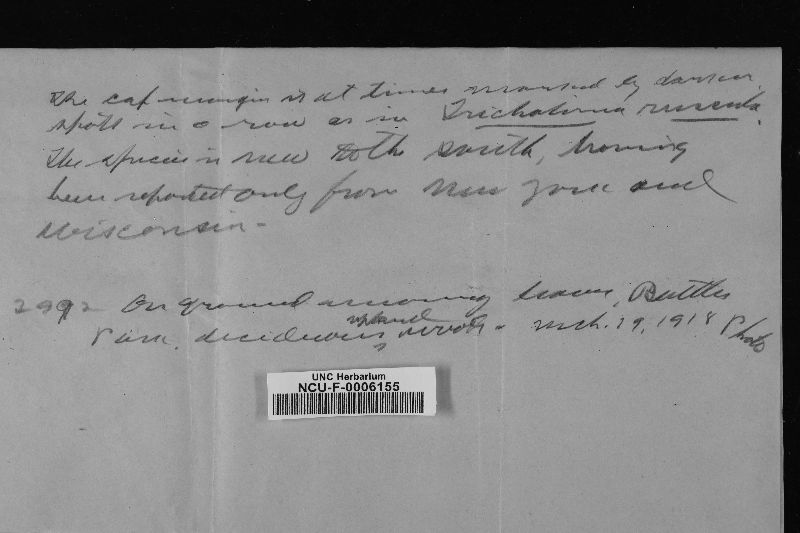 The cap margin is at times marked by darker
spots in a row as in Tricholoma russula.
The species is new to the south, having
been reported only from New York and
Wisconsin-
2992 On ground among leaves, Battles
Park, deciduous upland woods - Mch. 19, 1918 Photo
UNC Herbarium
NCU-F-0006155